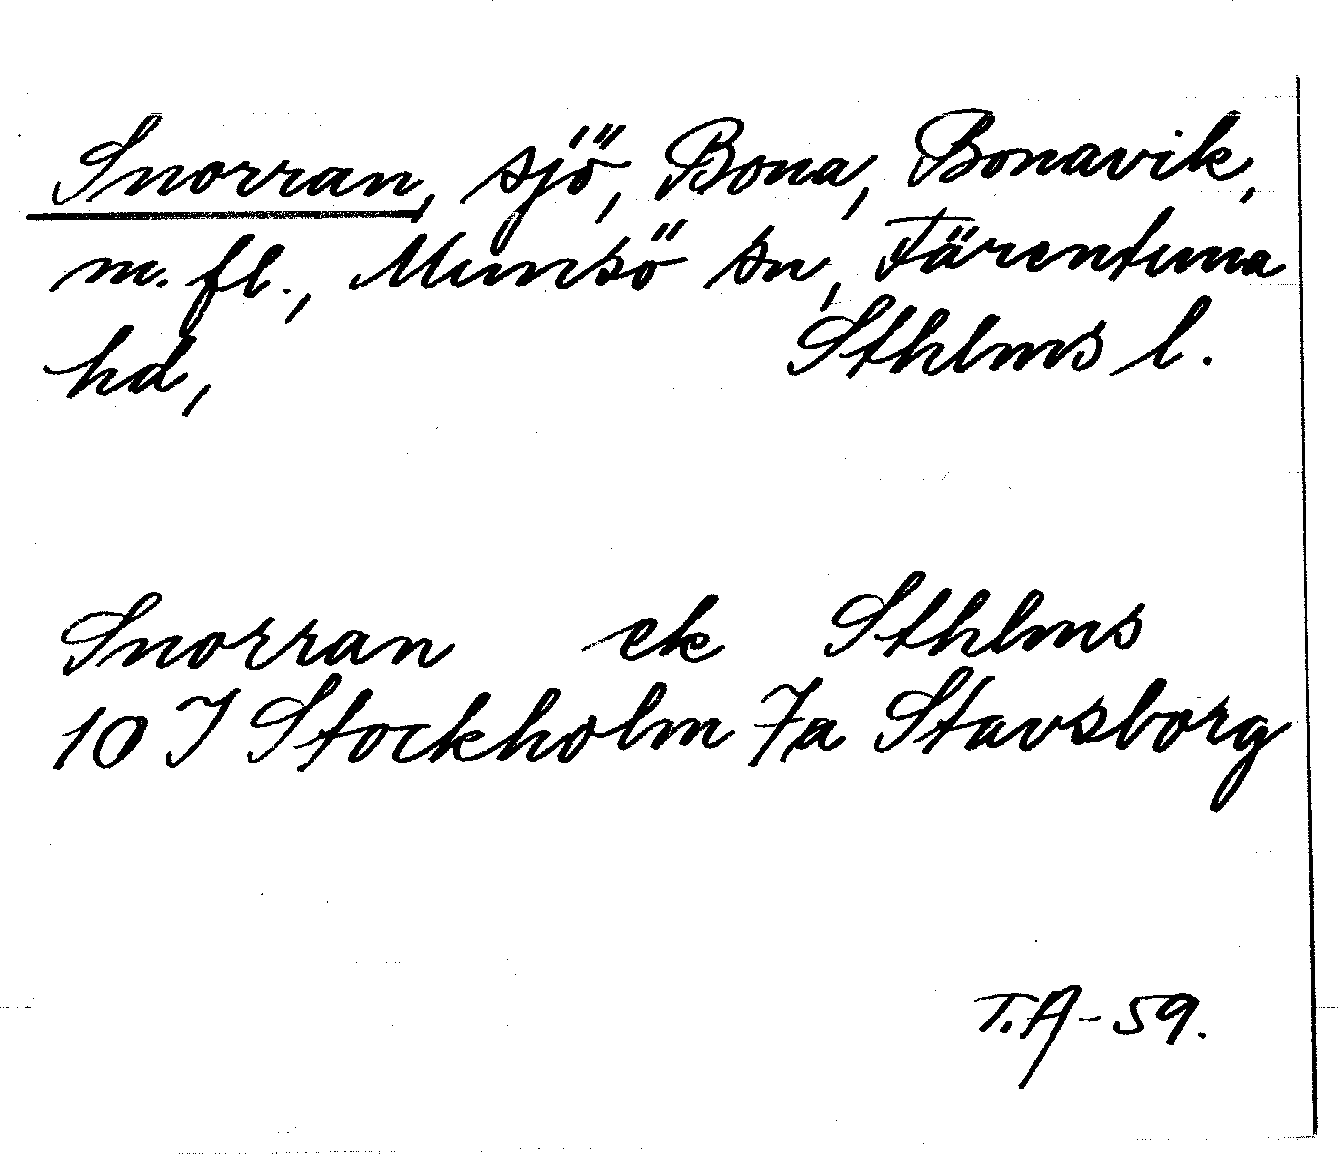 Snorran, sjö, Bona, Bonavik,
m. fl., Munsö sn, Färentuna
hd, Sthlms l.
Snorran ek Sthlms
10 I Stockholm 7a Stavsborg
T.A-59.